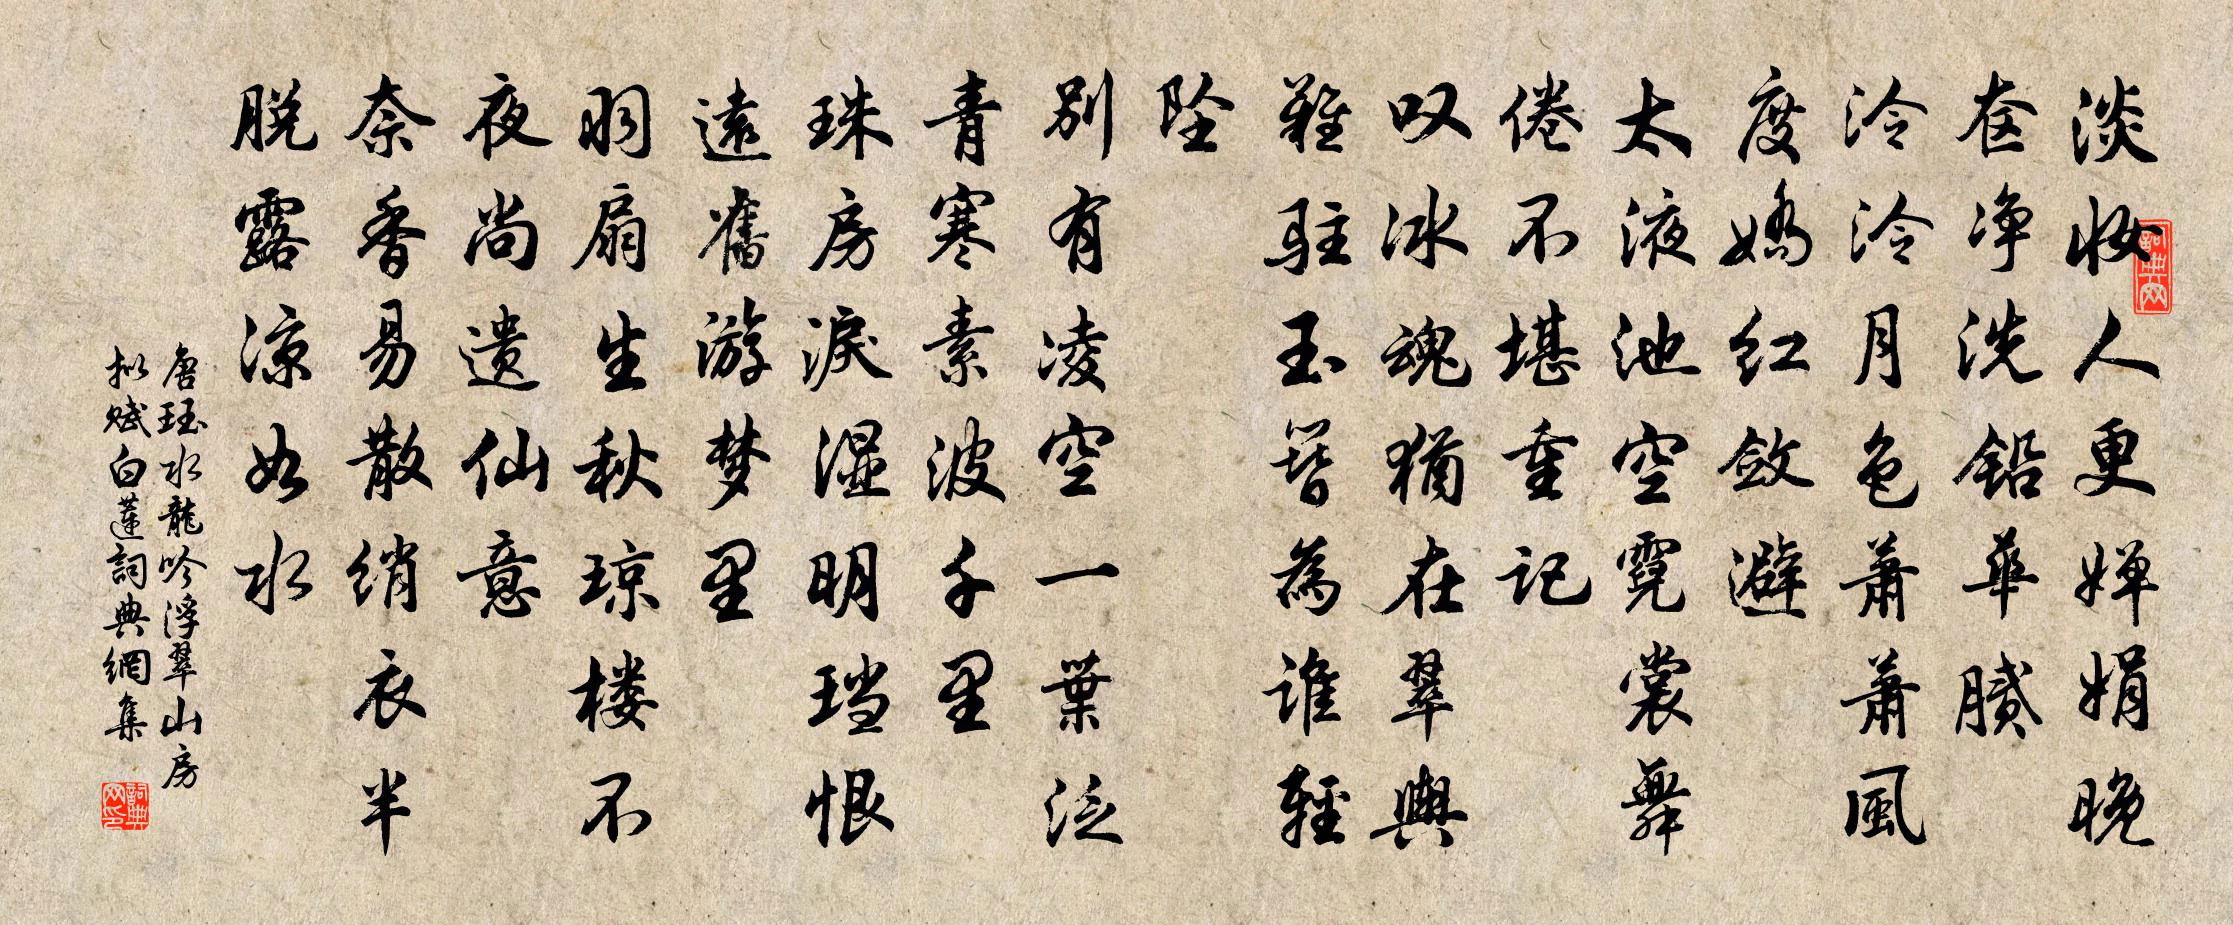 淡妆人更婵娟晚
奁净洗铅华腻
泠泠月色萧萧風
度娇红敛避
太液池空霓裳舞
倦不堪重记
叹冰魂犹在翠輿
难驻玉簪為谁轻
坠
别有凌空一葉泛
青寒素波千里
珠房淚湿明珰恨
遠舊游梦里
羽扇生秋琼楼不
夜尚遗仙意
奈香易散绡衣半
脱露凉如水
唐珏水龍吟浮翠山房
拟赋白莲詞典網集
詞典网
詞典网印